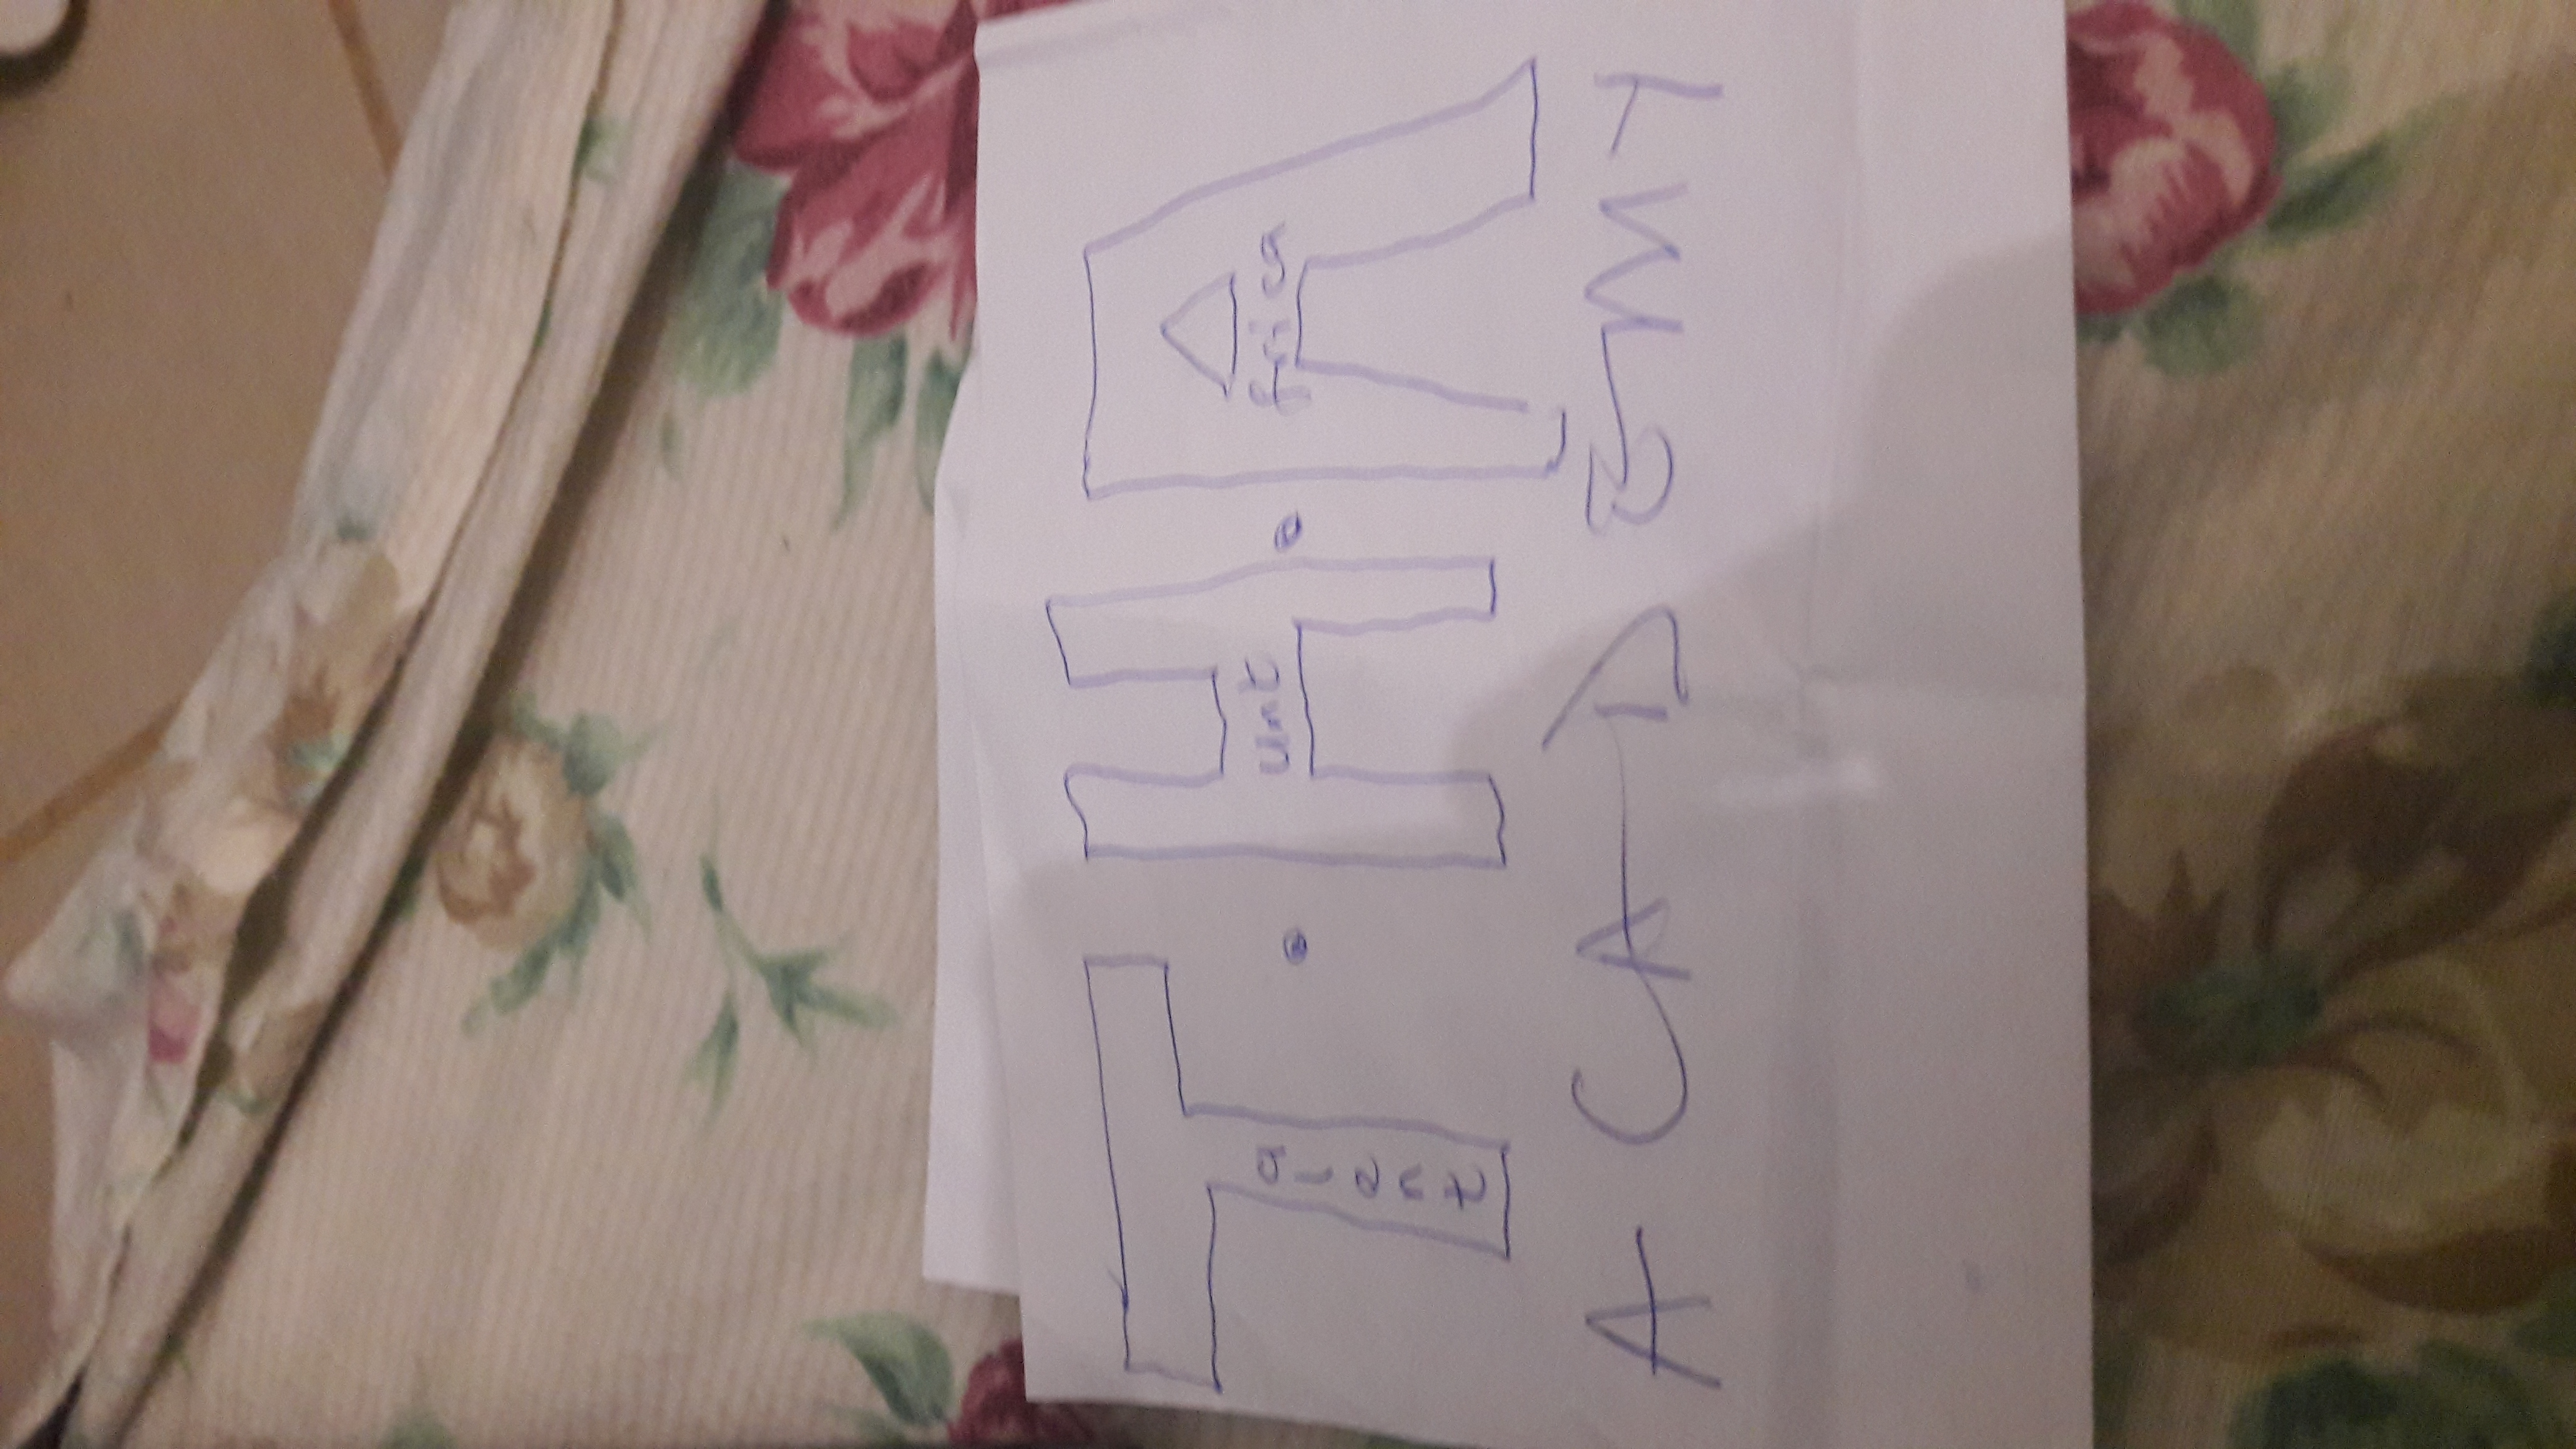 T.H.A
alent
unt
frica
ACADEMY